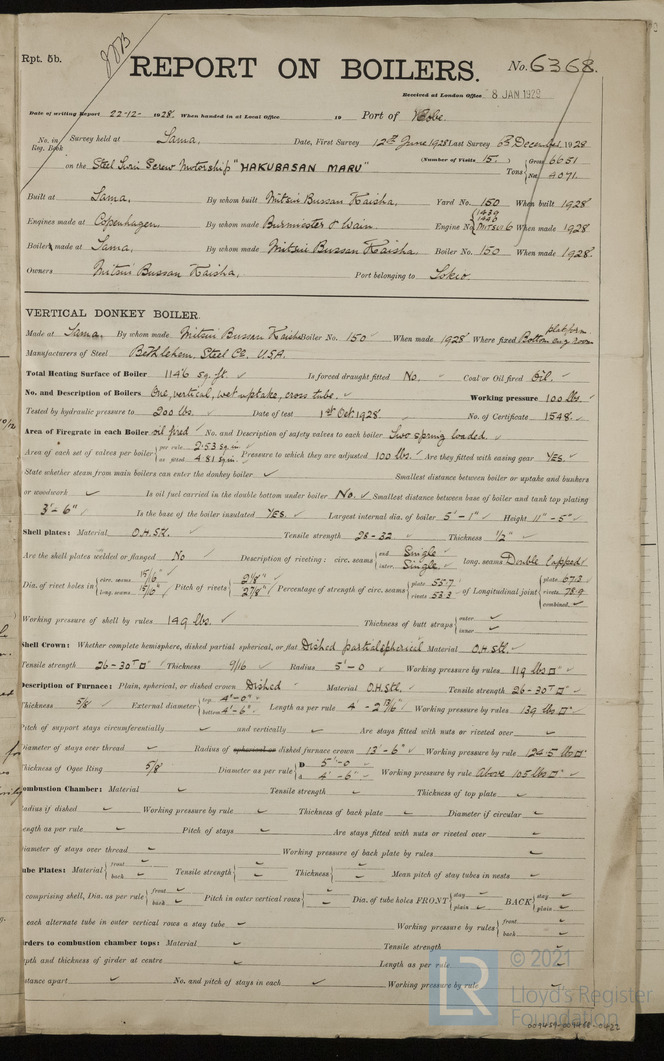 Rpt. 5b.
REPORT ON BOILERS.
No. 6368.
Received at London Office 8 JAN 1929
Date of writing Report 22-12- 1928. When handed in at Local Office 19 Port of Kobe.
No. in Reg. Book
Survey held at Tama. Date, First Survey 12th June 1928 Last Survey 6th December 1928
on the Steel Twin Screw Motorship "HAKUBASAN MARU" (Number of Visits 15.) Tons Gross 6651 Net 4071.
Built at Tama. By whom built Mitsui Bussan Kaisha. Yard No. 150 When built 1928
Engines made at Copenhagen. By whom made Burmeister & Wain. Engine No. 1439 1440 When made 1928
Boilers made at Tama. By whom made Mitsui Bussan Kaisha. Boiler No. 150 When made 1928.
Owners Mitsui Bussan Kaisha. Port belonging to Tokio.
VERTICAL DONKEY BOILER.
Made at Tama. By whom made Mitsui Bussan Kaisha Boiler No. 150 When made 1928 Where fixed Bottom platform eng room
Manufacturers of Steel Bethlehem Steel Co. U.S.A.
Total Heating Surface of Boiler 1146 sq. ft. Is forced draught fitted No. Coal or Oil fired Oil.
No. and Description of Boilers One, vertical, wet uptake, cross tube. Working pressure 100 lbs.
Tested by hydraulic pressure to 200 lbs. Date of test 1st Oct 1928 No. of Certificate 1548.
Area of Firegrate in each Boiler oil fired No. and Description of safety valves to each boiler Two spring loaded.
Area of each set of valves per boiler per rule 2.53 sq.in as fitted 4.81 sq.in. Pressure to which they are adjusted 100 lbs. Are they fitted with easing gear YES.
State whether steam from main boilers can enter the donkey boiler ✓ Smallest distance between boiler or uptake and bunkers
or woodwork ✓ Is oil fuel carried in the double bottom under boiler No. Smallest distance between base of boiler and tank top plating
3'-6" Is the base of the boiler insulated YES. Largest internal dia. of boiler 5'-1" Height 11"-5"
Shell plates: Material O.H.Stl. Tensile strength 28-32 Thickness 1/2"
Are the shell plates welded or flanged No Description of riveting: circ. seams end Single inter. Single long. seams Double lapped
Dia. of rivet holes in circ. seams 15/16" long. seams 15/16" Pitch of rivets 2 1/8" 2 7/8" Percentage of strength of circ. seams plate 55.7 rivets 53.3 of Longitudinal joint plate 67.3 rivets 78.9 combined ✓
Working pressure of shell by rules 149 lbs. Thickness of butt straps outer ✓ inner ✓
Shell Crown: Whether complete hemisphere, dished partial spherical, or flat Dished partial spherical Material O.H.Stl
Tensile strength 26-30 T□" Thickness 9/16 Radius 5'-0 Working pressure by rules 119 lbs □"
Description of Furnace: Plain, spherical, or dished crown Dished Material O.H.Stl. Tensile strength 26-30 T□"
Thickness 5/8 External diameter top 4'-0" bottom 4'-6" Length as per rule 4'-2 13/16" Working pressure by rules 139 lbs □"
Pitch of support stays circumferentially ✓ and vertically ✓ Are stays fitted with nuts or riveted over ✓
Diameter of stays over thread ✓ Radius of spherical or dished furnace crown 13'-6" Working pressure by rule 124.5 lbs □"
Thickness of Ogee Ring 5/8 Diameter as per rule D 5'-0 d 4'-6" Working pressure by rule Above 105 lbs □"
Combustion Chamber: Material ✓ Tensile strength ✓ Thickness of top plate ✓
Radius if dished ✓ Working pressure by rule ✓ Thickness of back plate ✓ Diameter if circular ✓
Length as per rule ✓ Pitch of stays ✓ Are stays fitted with nuts or riveted over ✓
Diameter of stays over thread ✓ Working pressure of back plate by rules ✓
Tube Plates: Material front ✓ back ✓ Tensile strength ✓ Thickness ✓ Mean pitch of stay tubes in nests ✓
comprising shell, Dia. as per rule front ✓ back ✓ Pitch in outer vertical rows ✓ Dia. of tube holes FRONT stay ✓ plain ✓ BACK stay ✓ plain ✓
each alternate tube in outer vertical rows a stay tube ✓ Working pressure by rules front ✓ back ✓
rders to combustion chamber tops: Material ✓ Tensile strength ✓
pth and thickness of girder at centre ✓ Length as per rule ✓
stance apart ✓ No. and pitch of stays in each ✓ Working pressure by rule ✓
© 2021
LR
Lloyd's Register
Foundation
009459-009468-0422